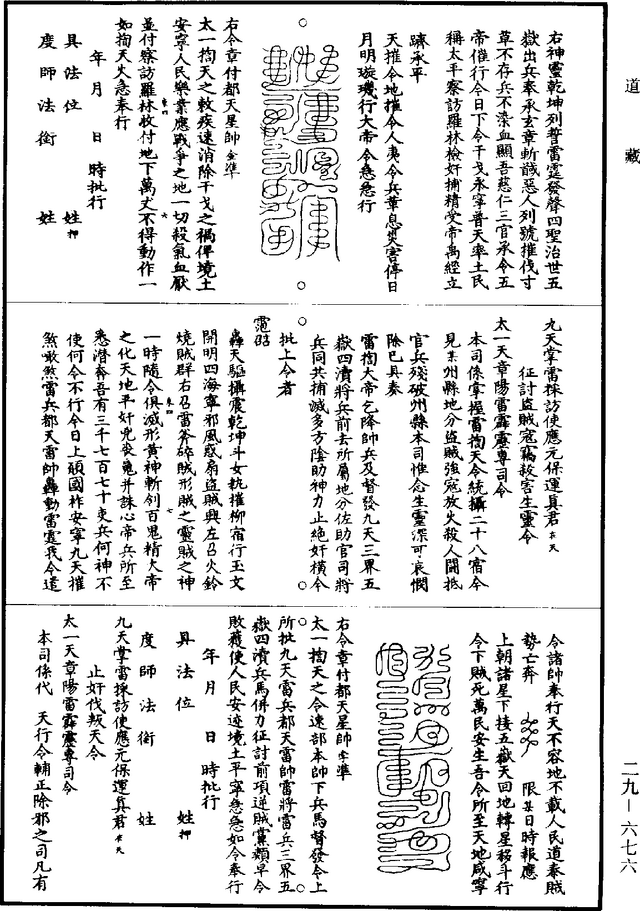 道藏
右神靈乾坤列誓雷霆發聲四聖治世五
嶽出兵奉承玄章斬馘惡人列號摧伐寸
草不存兵不染血顯吾慈仁三官承令五
帝催行今日下令干戈永寧普天率土民
稱太平察訪羅林檢奸捕精受帝禹經立
躋承平
天摧令地摧令人夷令兵革息災害停日
月明璇璣行大帝令急急行
右令章付都天星帥 全準
太一掏天之敕疾速消除干戈之禍俾境土
安寧人民樂業應戰爭之地一切殺氣血厭
並付察訪羅林收付地下萬丈不得動作一
如掏天火急奉行
年 月 日 時批行
具 法 位 姓 押
度 師 法 銜 姓
九天掌雷採訪使應元保運真君
征討盜賊寇竊殺害生靈令
太一天章陽雷霹靂專司令
本司係掌握雷掏天令統攝二十八宿今
見某州縣地分盜賊強寇放火殺人聞抵
官兵殘破州縣本司惟念生靈深可哀憫
除已具奏
雷掏大帝乞降帥兵及督發九天三界五
嶽四瀆將兵前去所屬地分佐助官司將
兵同共捕滅多方陰助神力止絕奸橫令
批上令者
霐䨓
轟天驅攝震乾坤斗女執摧柳宿行玉文
開明四海寧邪風惑扇盜賊興左召火鈴
燒賊群右召雷斧碎賊形賊之靈賊之神
一時隨令俱滅形黃神斬刽百鬼精大帝
之化天地平奸兇炎鬼并誅心帝兵所至
悉潛奔吾有三千七百七十吏兵何神不
使何令不行今日上願國祚安寧九天摧
煞敢煞雷兵都天雷帥轟動雷霆我令遣
令諸帥奉行天不容地不載人民道奉賊
勢亡奔 限某日時報應
上朝諸星下接五嶽天回地轉星移斗行
令下賊死萬民安生吾令所至天地咸寧
右令章付都天星帥 全準
太一掏天之令速部本帥下兵馬督發令上
所批九天雷兵都天雷帥雷將雷兵三界五
嶽四瀆兵馬併力征討前項逆賊黨類早令
敗獲使人民安迹境土平寧急急如令奉行
年 月 日 時批行
具 法 位 姓 押
度 師 法 銜 姓
九天掌雷採訪使應元保運真君
止奸伐叛天令
太一天章陽雷霹靂專司令
本司係代 天行令輔正除邪之司凡有
二九－六七六